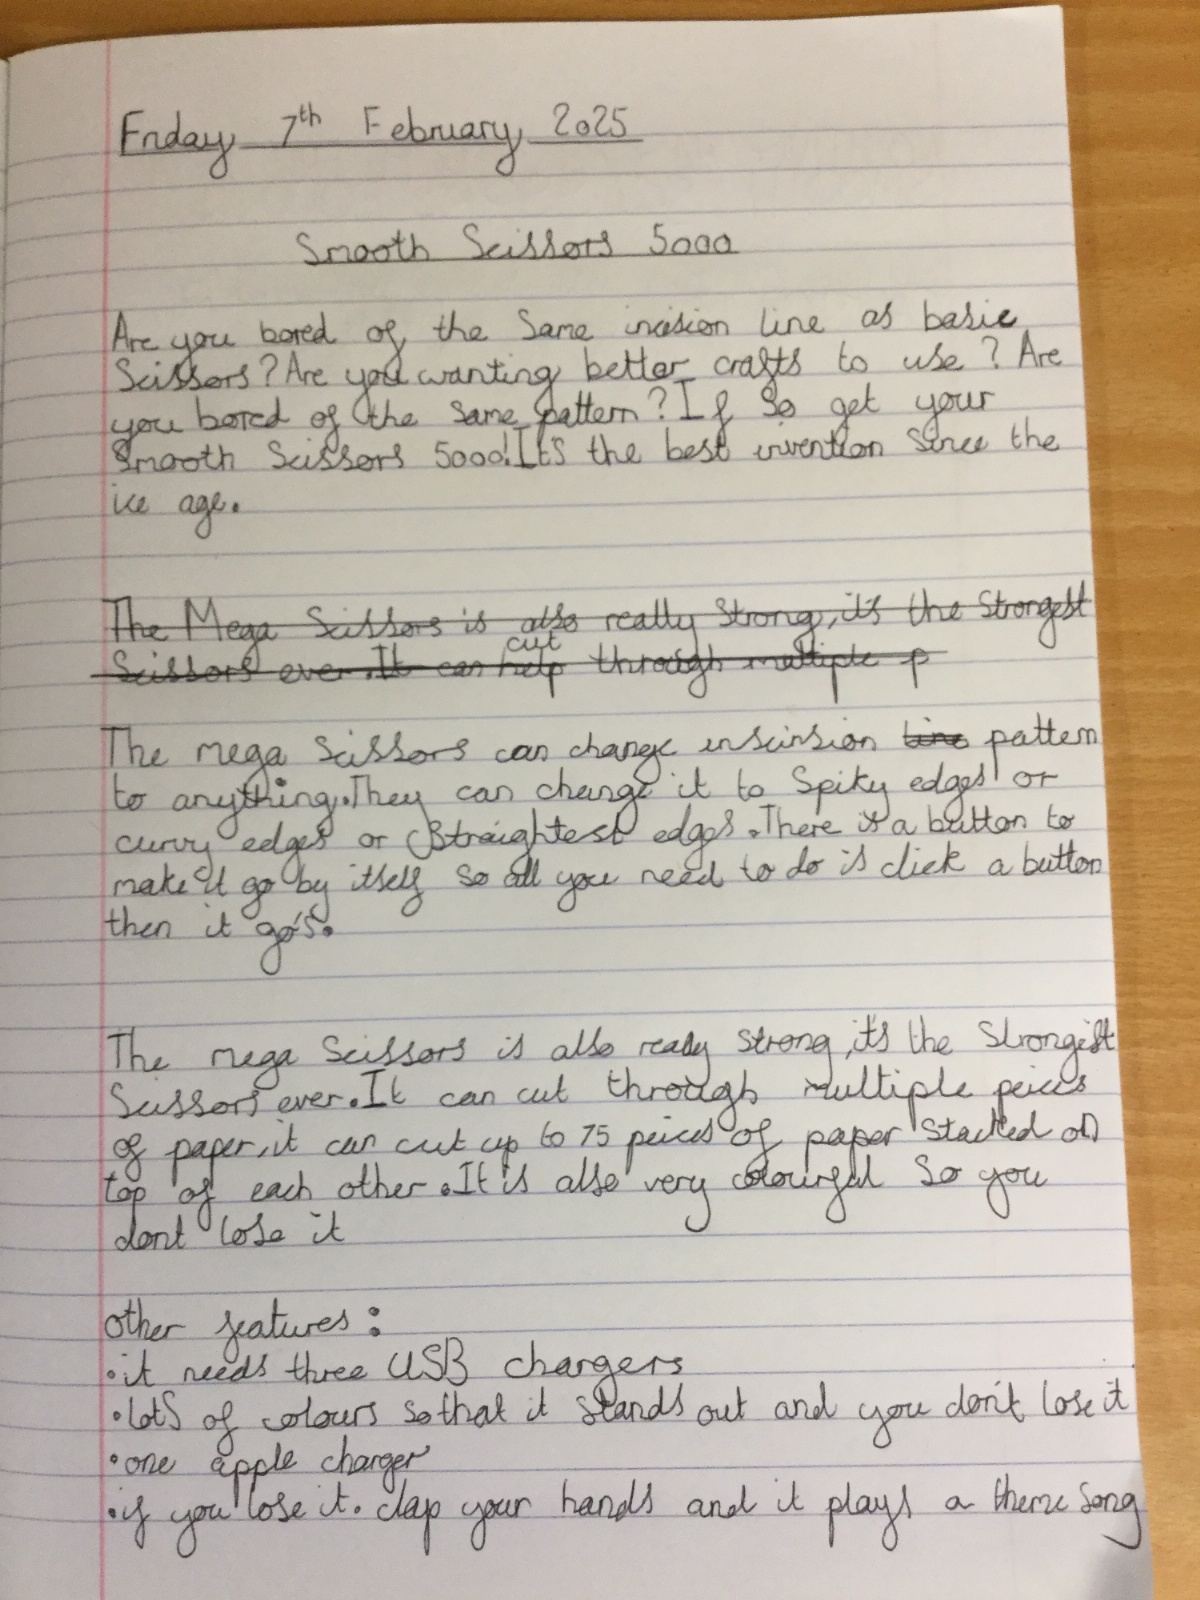 Friday 7th February 2025
Smooth Scissors 5000
Are you bored of the same incision line as basic
Scissors? Are you wanting better crafts to use? Are
you bored of the same pattern? If so get your
Smooth Scissors 5000! It's the best invention since the
ice age.
The Mega Scissors is also really strong, it's the strongest
Scissors ever. It can help cut through multiple p
The mega Scissors can change inscinsion line pattern
to anything. They can change it to Spiky edges or
curvy edges or Straightest edges. There is a button to
make it go by itself so all you need to do is click a button
then it go's.
The mega Scissors is also realy strong, it's the Strongist
Scissors ever. It can cut through multiple peices
of paper, it can cut up to 75 peices of paper stacked on
top of each other. It is also very colourful So you
dont lose it
other features:
•it needs three USB chargers
•lots of colours so that it stands out and you don't lose it
•one apple charger
•if you lose it. clap your hands and it plays a theme song